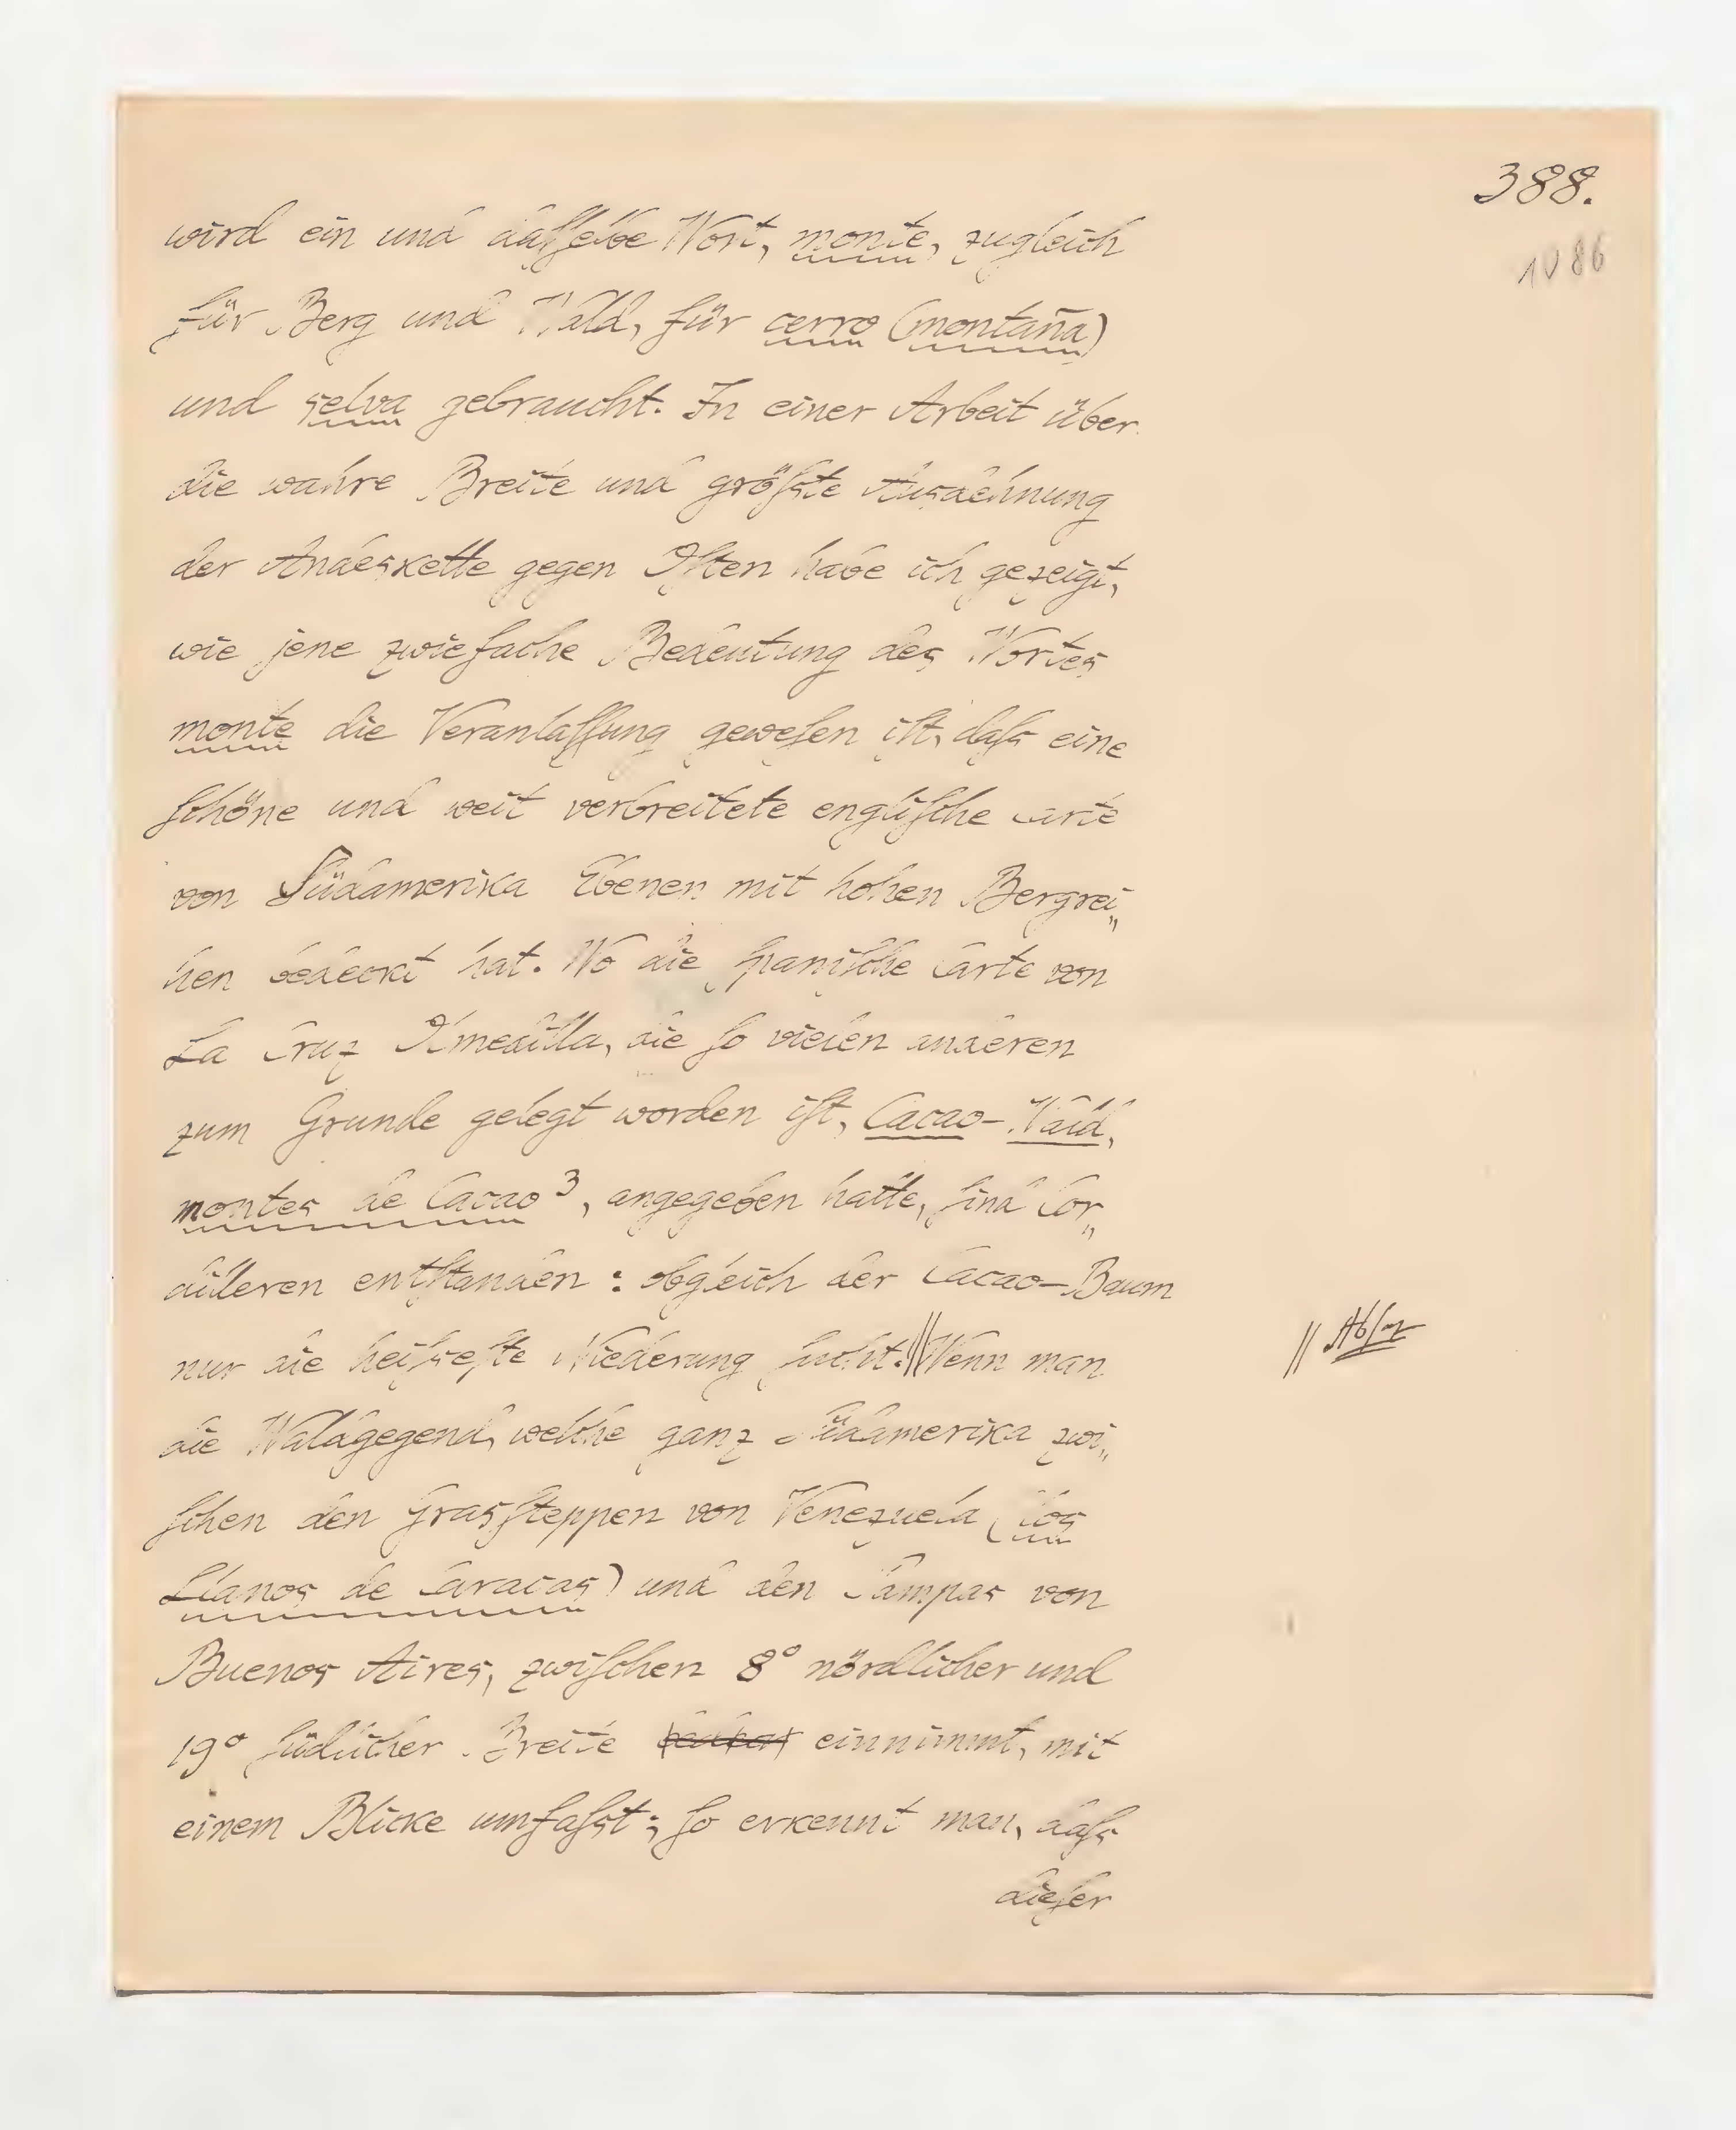 388.
1086
wird ein und daſſelbe Wort, monte, zugleich
für Berg und Wald, für cerro (montaña)
und selva gebraucht. In einer Arbeit über
die wahre Breite und gröſste Ausdehnung
der Andeskette gegen Oſten habe ich gezeigt,
wie jene zwiefache Bedeutung des Wortes
monte die Veranlaſſung geweſen iſt, daſs eine
ſchöne und weit verbreitete engliſche Carte
von Südamerika Ebenen mit hohen Bergrei„
hen bedeckt hat. Wo die ſpaniſche Carte von
La Cruz Olmedilla, die ſo vielen anderen
zum Grunde gelegt worden iſt, Cacao-Wald,
montes de Cacao³, angegeben hatte, ſind Cor„
dilleren entſtanden: obgleich der Cacao-Baum
nur die heiſseſte Niederung ſucht.||Wenn man
|| Abſaz
die Waldgegend, welche ganz Südamerika zwi„
ſchen den Grasſteppen von Venezuela (los
Llanos de Caracas) und den Pampas von
Buenos Aires, zwiſchen 8° nördlicher und
19° ſüdlicher Breite einnimmt, mit
einem Blicke umfaſst; ſo erkennt man, daſs
dieſer